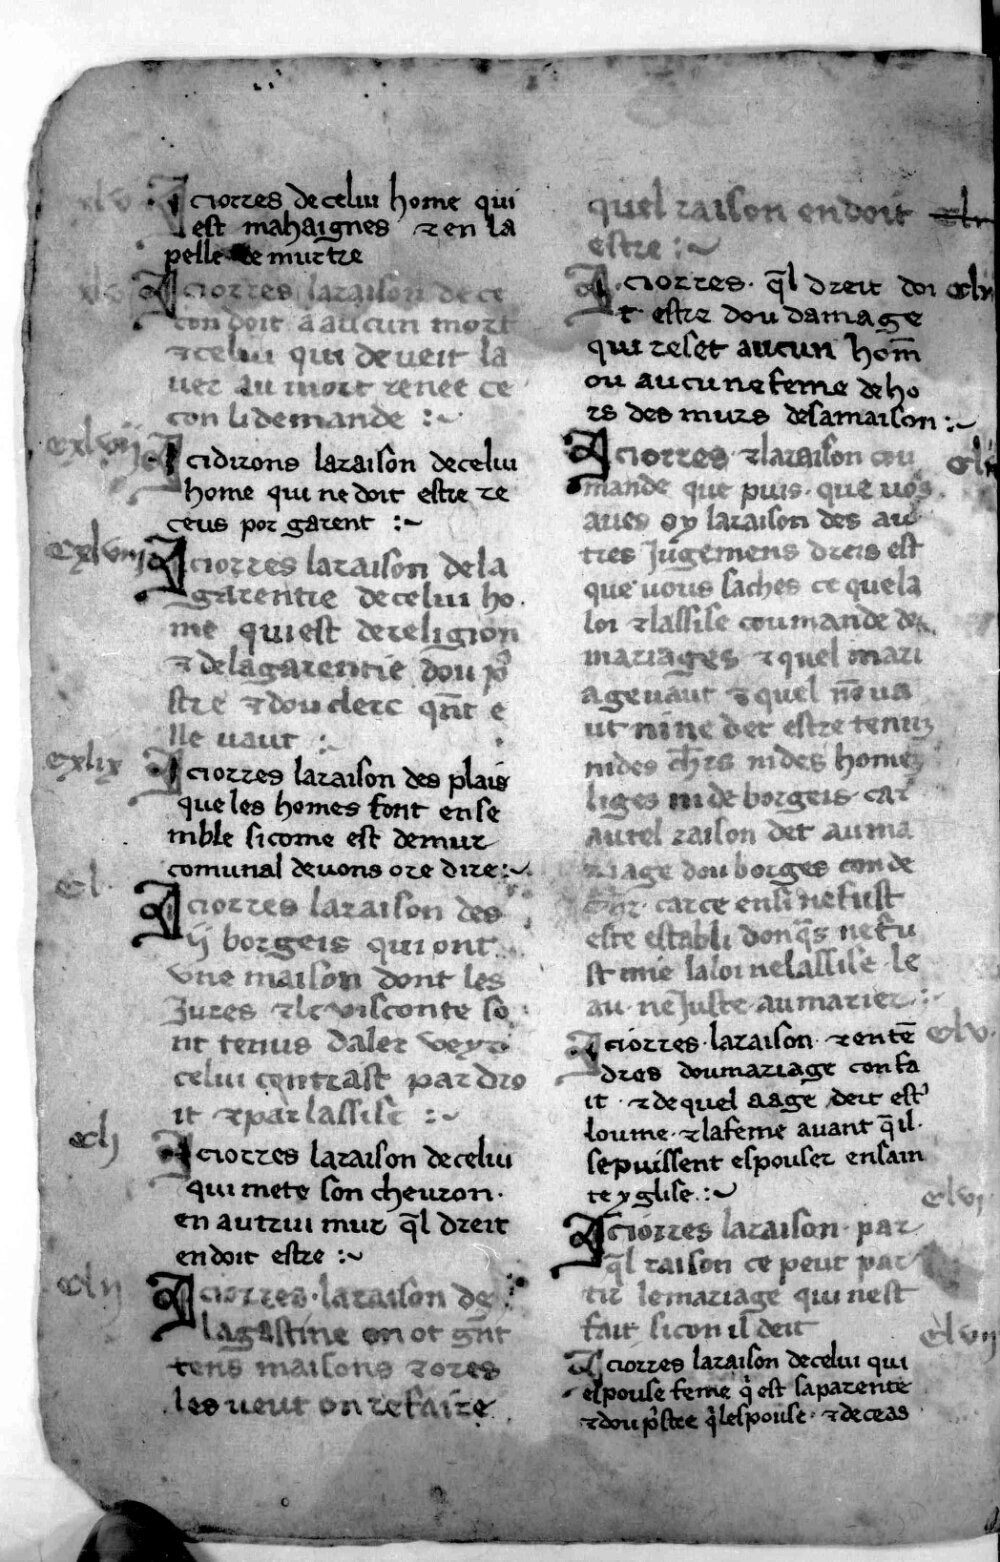 Aci orres de celui home qui
est mahaignes ⁊ en la
pelle de murtre
Aci orres la raison de ce
con doit a aucun mort
⁊ celui qui deveit la
ver au mort renee ce
con li demande :~
cxlvij
Aci dirons la raison de celui
home qui ne doit estre re
ceus por garent :~
cxlviij
Aci orres la raison de la
garentie de celui ho
me qui est de religion
⁊ de la garentie dou p̄
stre ⁊ dou clerc qñt e
lle vaut :
cxlix
Aci orres la raison des plais
que les homes font ense
mble si come est de mur
comunal devons ore dire :~
cl.
Aci orres la raison des
ij borgeis qui ont
une maison dont les
Jures ⁊ le visconte so
nt tenus daler veyr
celui contrast par dro
it ⁊ par lassise :~
clj
Aci orres la raison de celui
qui mete son chevron.
en autrui mur q̄l dreit
en doit estre :~
clij
Aci orres la raison de
la gastine on ot gñt
tens maisons ⁊ ores
les veut on refaire
quel raison en doit
estre :~
Aci orres. q̄l dreit doi
t estre dou damage
qui reset aucun hom̄
ou aucune feme deho
rs des murs de sa maison :~
Aci orres ⁊ la raison cou
mande que puis. que vos
aves oy la raison des au
tres Jugemens dreis est
que vous saches ce que la
loi ⁊ lassise coumande des
mariages ⁊ quel mari
age vaut ⁊ quel nē va
ut ni ne det estre tenuz
ni des ch̄rs ni des homez
liges ni de borgeis car
autel raison det au ma
riage dou borges con de
carce ensi ne fust
este establi donq̄s ne fu
st mie la loi ne lassise le
au ne Juste au marier :~
clv.
Aci orres. la raison ⁊ entē
dres dou mariage con fa
it ⁊ de quel aage deit est'
loume. ⁊ la feme avant q̄ il.
se puissent espouser en sain
te yglise :~
clvj
Aci orres la raison. par
q̄l raison ce peut par
tir le mariage qui nest
fait si con il deit
clvij
Aci orres la raison de celui qui
espouse feme q̄ est sa parente
⁊ dou p̄stre q̄ lespouse ⁊ de ceas